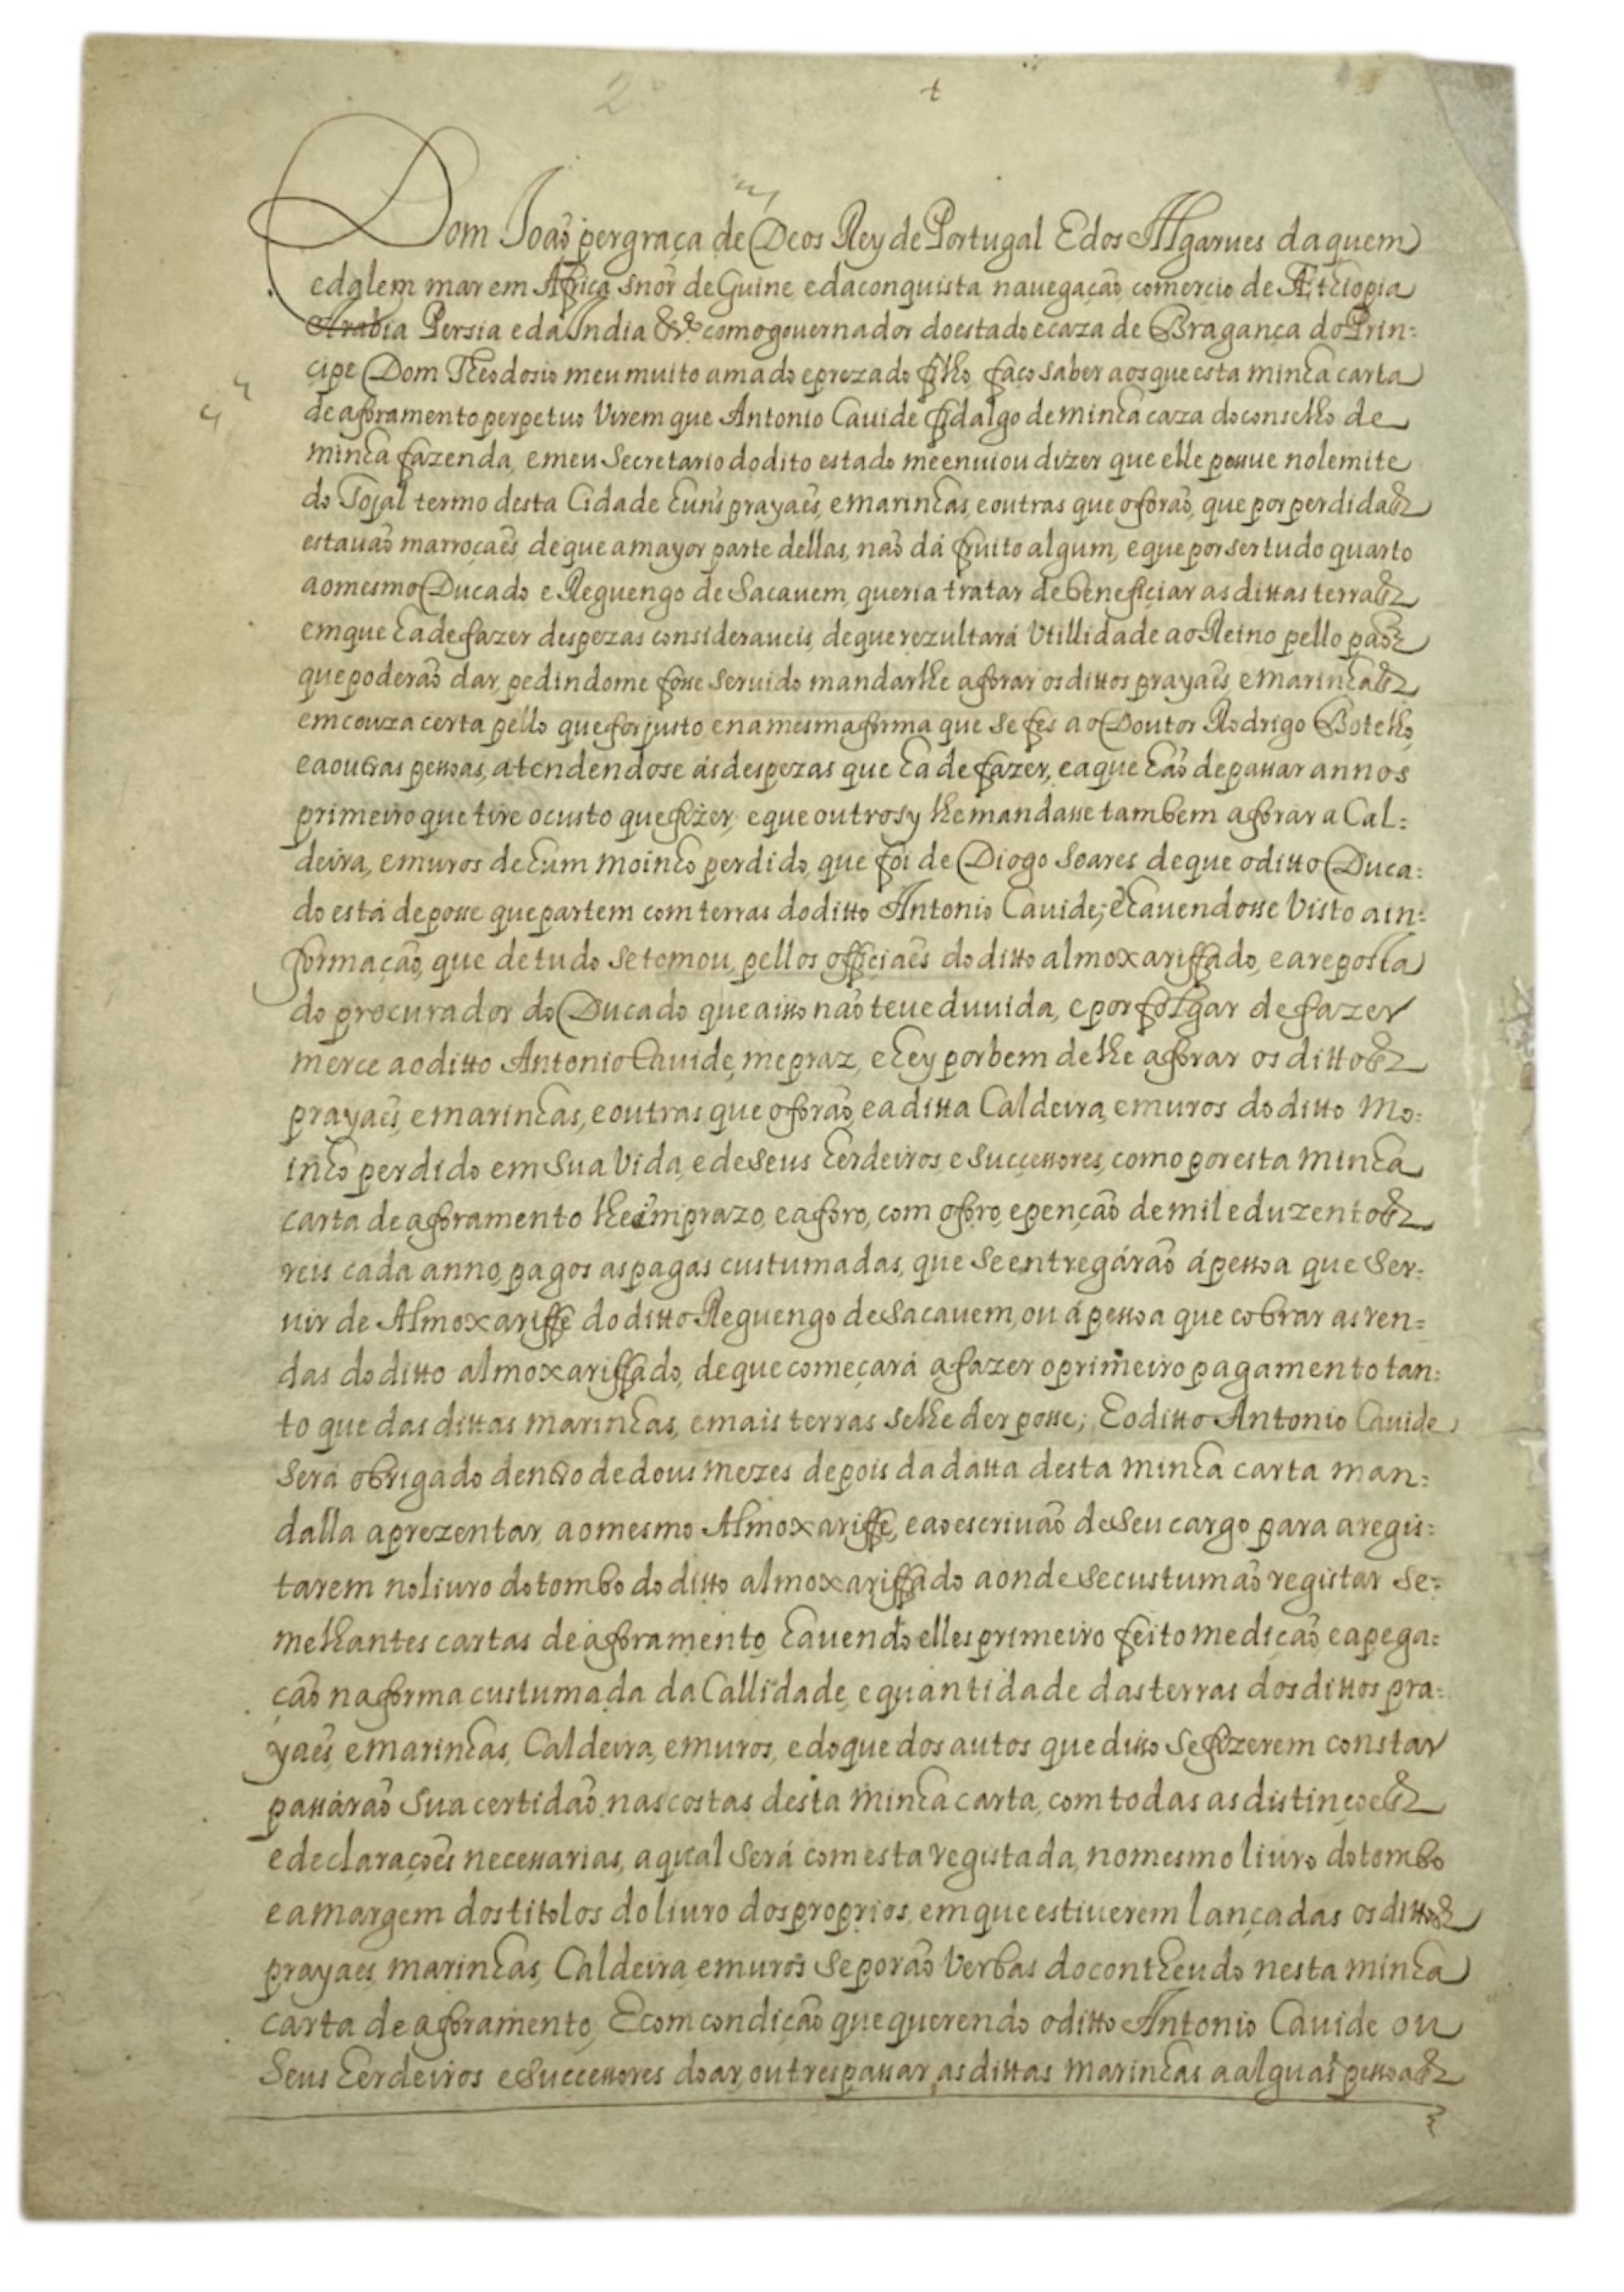 2º
t
Dom Joaõ per graça de Deos Rey de Portugal E dos Algarues daquem
e dalem mar em Africa snor de Guine e da conquista nauegação comercio de Æthiopia
Arabia Persia e da India &ª. como gouernador do estado e caza de Bragança do Prin:
cipe Dom Theodosio meu muito amado e prezado filho faço saber aos que esta minha carta
de aforamento perpetuo Virem que Antonio Cauide fidalgo de minha caza do conselho de
minha fazenda, e meu Secretario do dito estado me enuiou dizer que elle possue no lemite
do Tojal termo desta Cidade huns prayaes, e marinhas, e outras que o forão, que por perdidas
estauão marroçaes, de que a mayor parte dellas, não dá fruito algum, e que por ser tudo quarto
ao mesmo Ducado e Reguengo de Sacauem, queria tratar de beneficiar as dittas terras
em que ha de fazer despezas consideraueis, de que rezultará Vtillidade ao Reino pello pão
que poderão dar, pedindome fosse seruido mandarlhe aforar os dittos prayaes, e marinhas
em couza certa pello que for justo, e na mesma forma que se fes ao Doutor Rodrigo Botelho
e a outras pessoas, atendendose ás despezas que ha de fazer, e a que hão de passar annos
primeiro que tire o custo que fizer, e que outrosy lhe mandasse tambem aforar a Cal:
deira, e muros de hum moinho perdido, que foi de Diogo Soares de que o ditto Duca:
do está de posse que partem com terras do ditto Antonio Cauide; E hauendosse Visto a in:
formação, que de tudo se tomou, pellos officiaes do ditto almoxariffado, e a reposta
do procurador do Ducado que a isso não teue duuida, e por folgar de fazer
merce ao ditto Antonio Cauide, me praz, e hey por bem de lhe aforar os dittos
prayaes, e marinhas, e outras que o forão, e a ditta Caldeira, e muros do ditto Mo:
inho perdido em sua Vida, e de seus herdeiros, e successores, como por esta minha
carta de aforamento lhe imprazo, e aforo, com o foro, e penção de mil e duzentos
reis cada anno, pagos as pagas custumadas, que se entregárão á pessoa que ser:
uir de Almoxariffe do ditto Reguengo de Sacauem, ou á pessoa que cobrar as ren:
das do ditto almoxariffado, de que começará a fazer o primeiro pagamento tan:
to que das dittas marinhas, e mais terras se lhe der posse; E o ditto Antonio Cauide
será obrigado dentro de dous mezes depois da datta desta minha carta man:
dalla aprezentar, ao mesmo Almoxariffe, e ao escriuão de seu cargo para a regis:
tarem no liuro do tombo do ditto almoxariffado aonde se custumão registar se:
melhantes cartas de aforamento, hauendo elles primeiro feito medição, e apega:
ção na forma custumada da Callidade, e quantidade das terras dos dittos pra:
yaes, e marinhas, Caldeira, e muros, e do que dos autos que disso se fizerem constar
passárão sua certidão, nas costas desta minha carta, com todas as distinçoes
e declaraçoes necessarias, a qual será com esta registada, no mesmo liuro do tombo
e a margem dos titolos do liuro dos proprios, em que estiuerem lançadas os dittos
prayaes, marinhas, Caldeira, e muros se porão Verbas do contheudo nesta minha
carta de aforamento, E com condição que querendo o ditto Antonio Cauide ou
seus herdeiros e successores doar, ou trespassar, as dittas marinhas a alguas pessoas